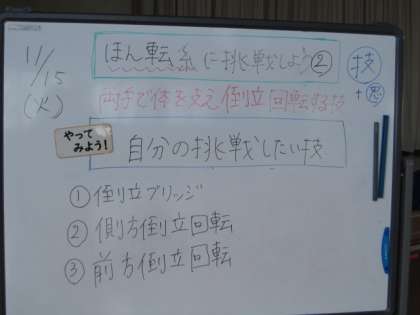 11/15
(火)
ほん転系に挑戦しよう②
技
+
両手で体を支え倒立回転する技
やって
みよう!
自分の挑戦したい技
①倒立ブリッジ
②側方倒立回転
③前方倒立回転